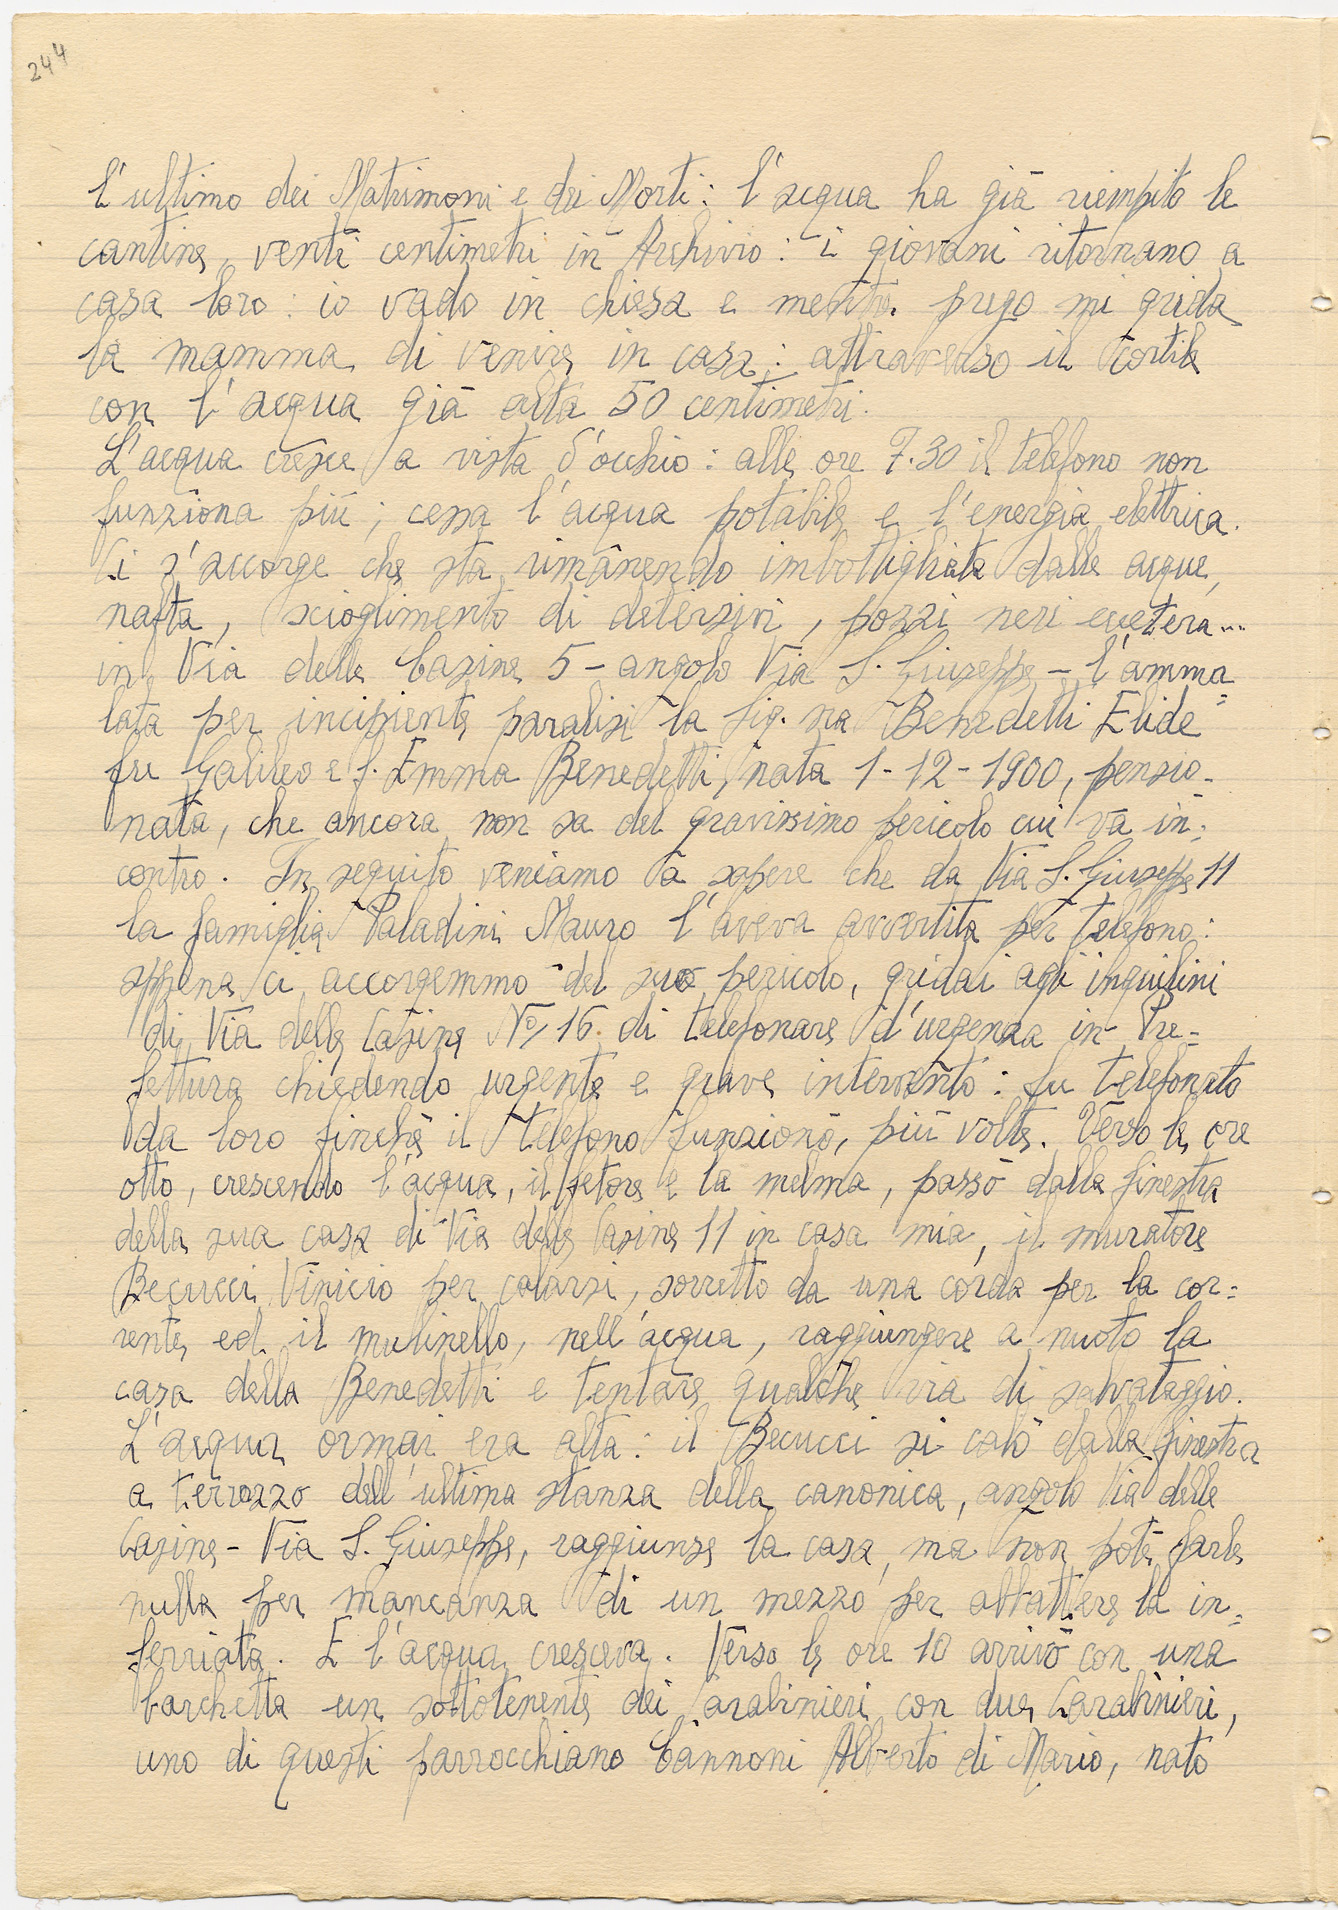 244
l'ultimo dei Matrimoni e dei Morti: l'acqua ha già riempito le
cantine, venti centimetri in Archivio: i giovani ritornano a
casa loro: io vado in chiesa e mentre prego mi grida
la mamma di venire in casa: attraverso il cortile
con l'acqua già alta 50 centimetri.
L'acqua cresce a vista d'occhio: alle ore 7.30 il telefono non
funziona più; cessa l'acqua potabile e l'energia elettrica.
Ci s'accorge che sta rimanendo imbottigliata dalle acque,
nafta, scioglimento di detersivi, pozzi neri eccetera...
in Via delle Casine 5 - angolo Via S. Giuseppe - l'amma=
lata per incipiente paralisi la sig.na Benedetti Elide
fu Galileo e f. Emma Benedetti, nata 1-12-1900, pensio-
nata, che ancora non sa del gravissimo pericolo cui va in=
contro. In seguito veniamo a sapere che da Via S. Giuseppe 11
la famiglia Paladini Mauro l'aveva avvertita per telefono:
appena ci accorgemmo del suo pericolo, gridai agli inquilini
di Via delle Casine N° 16 di telefonare d'urgenza in Pre=
fettura chiedendo urgente e grave intervento: fu telefonato
da loro finchè il telefono funzionò, più volte. Verso le ore
otto, crescendo l'acqua, il fetore e la melma, passò dalla finestra
della sua casa di Via delle Casine 11 in casa mia, il muratore
Becucci Vinicio per calarsi, sorretto da una corda per la cor=
rente ed il mulinello, nell'acqua, raggiungere a nuoto la
casa della Benedetti e tentare qualche via di salvataggio.
L'acqua ormai era alta: il Becucci si calò dalla finestra
a terrazzo dell'ultima stanza della canonica, angolo Via delle
Casine - Via S. Giuseppe, raggiunse la casa, ma non potè farle
nulla per mancanza di un mezzo per abbattere la in=
ferriata. E l'acqua cresceva. Verso le ore 10 arrivò con una
barchetta un sottotenente dei Carabinieri con due Carabinieri,
uno di questi parrocchiano Cannoni Alberto di Mario, nato